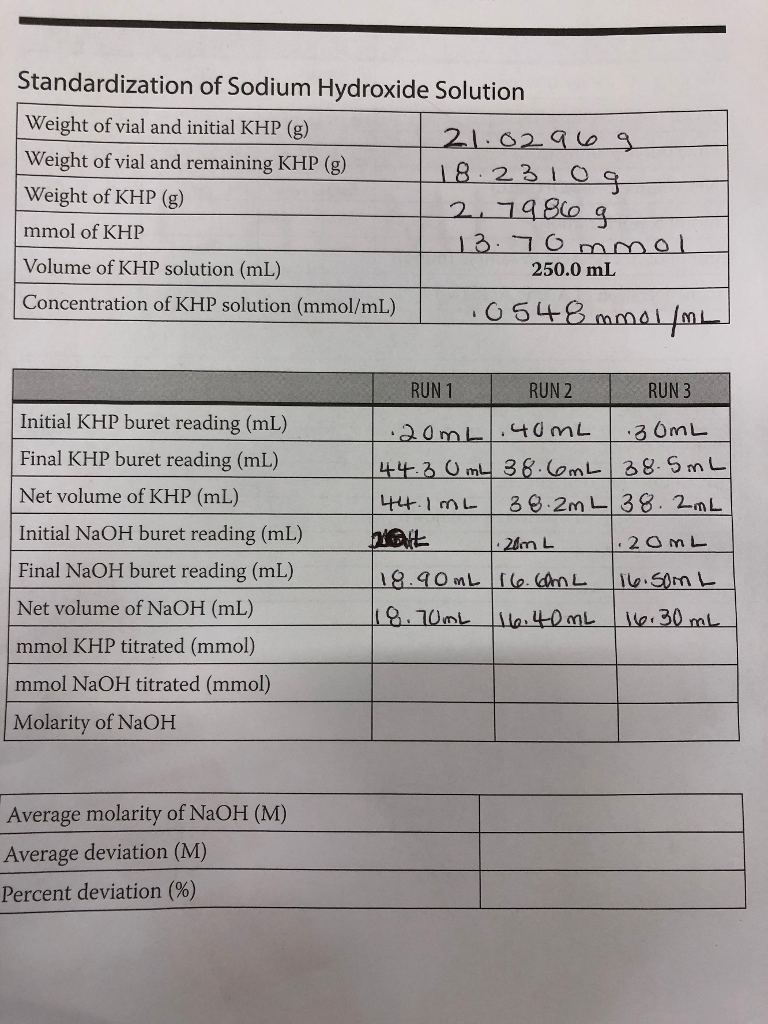 Standardization of Sodium Hydroxide Solution
Weight of vial and initial KHP (g) 21.0296 g
Weight of vial and remaining KHP (g) 18.2310 g
Weight of KHP (g) 2.7986 g
mmol of KHP 13.70 mmol
Volume of KHP solution (mL) 250.0 mL
Concentration of KHP solution (mmol/mL) .0548 mmol/mL
RUN 1 RUN 2 RUN 3
Initial KHP buret reading (mL) .20mL .40mL .30mL
Final KHP buret reading (mL) 44.30mL 38.6mL 38.5mL
Net volume of KHP (mL) 44.1mL 38.2mL 38.2mL
Initial NaOH buret reading (mL) .20mL .20mL
Final NaOH buret reading (mL) 18.90mL 16.60mL 16.50mL
Net volume of NaOH (mL) 18.70mL 16.40mL 16.30mL
mmol KHP titrated (mmol)
mmol NaOH titrated (mmol)
Molarity of NaOH
Average molarity of NaOH (M)
Average deviation (M)
Percent deviation (%)